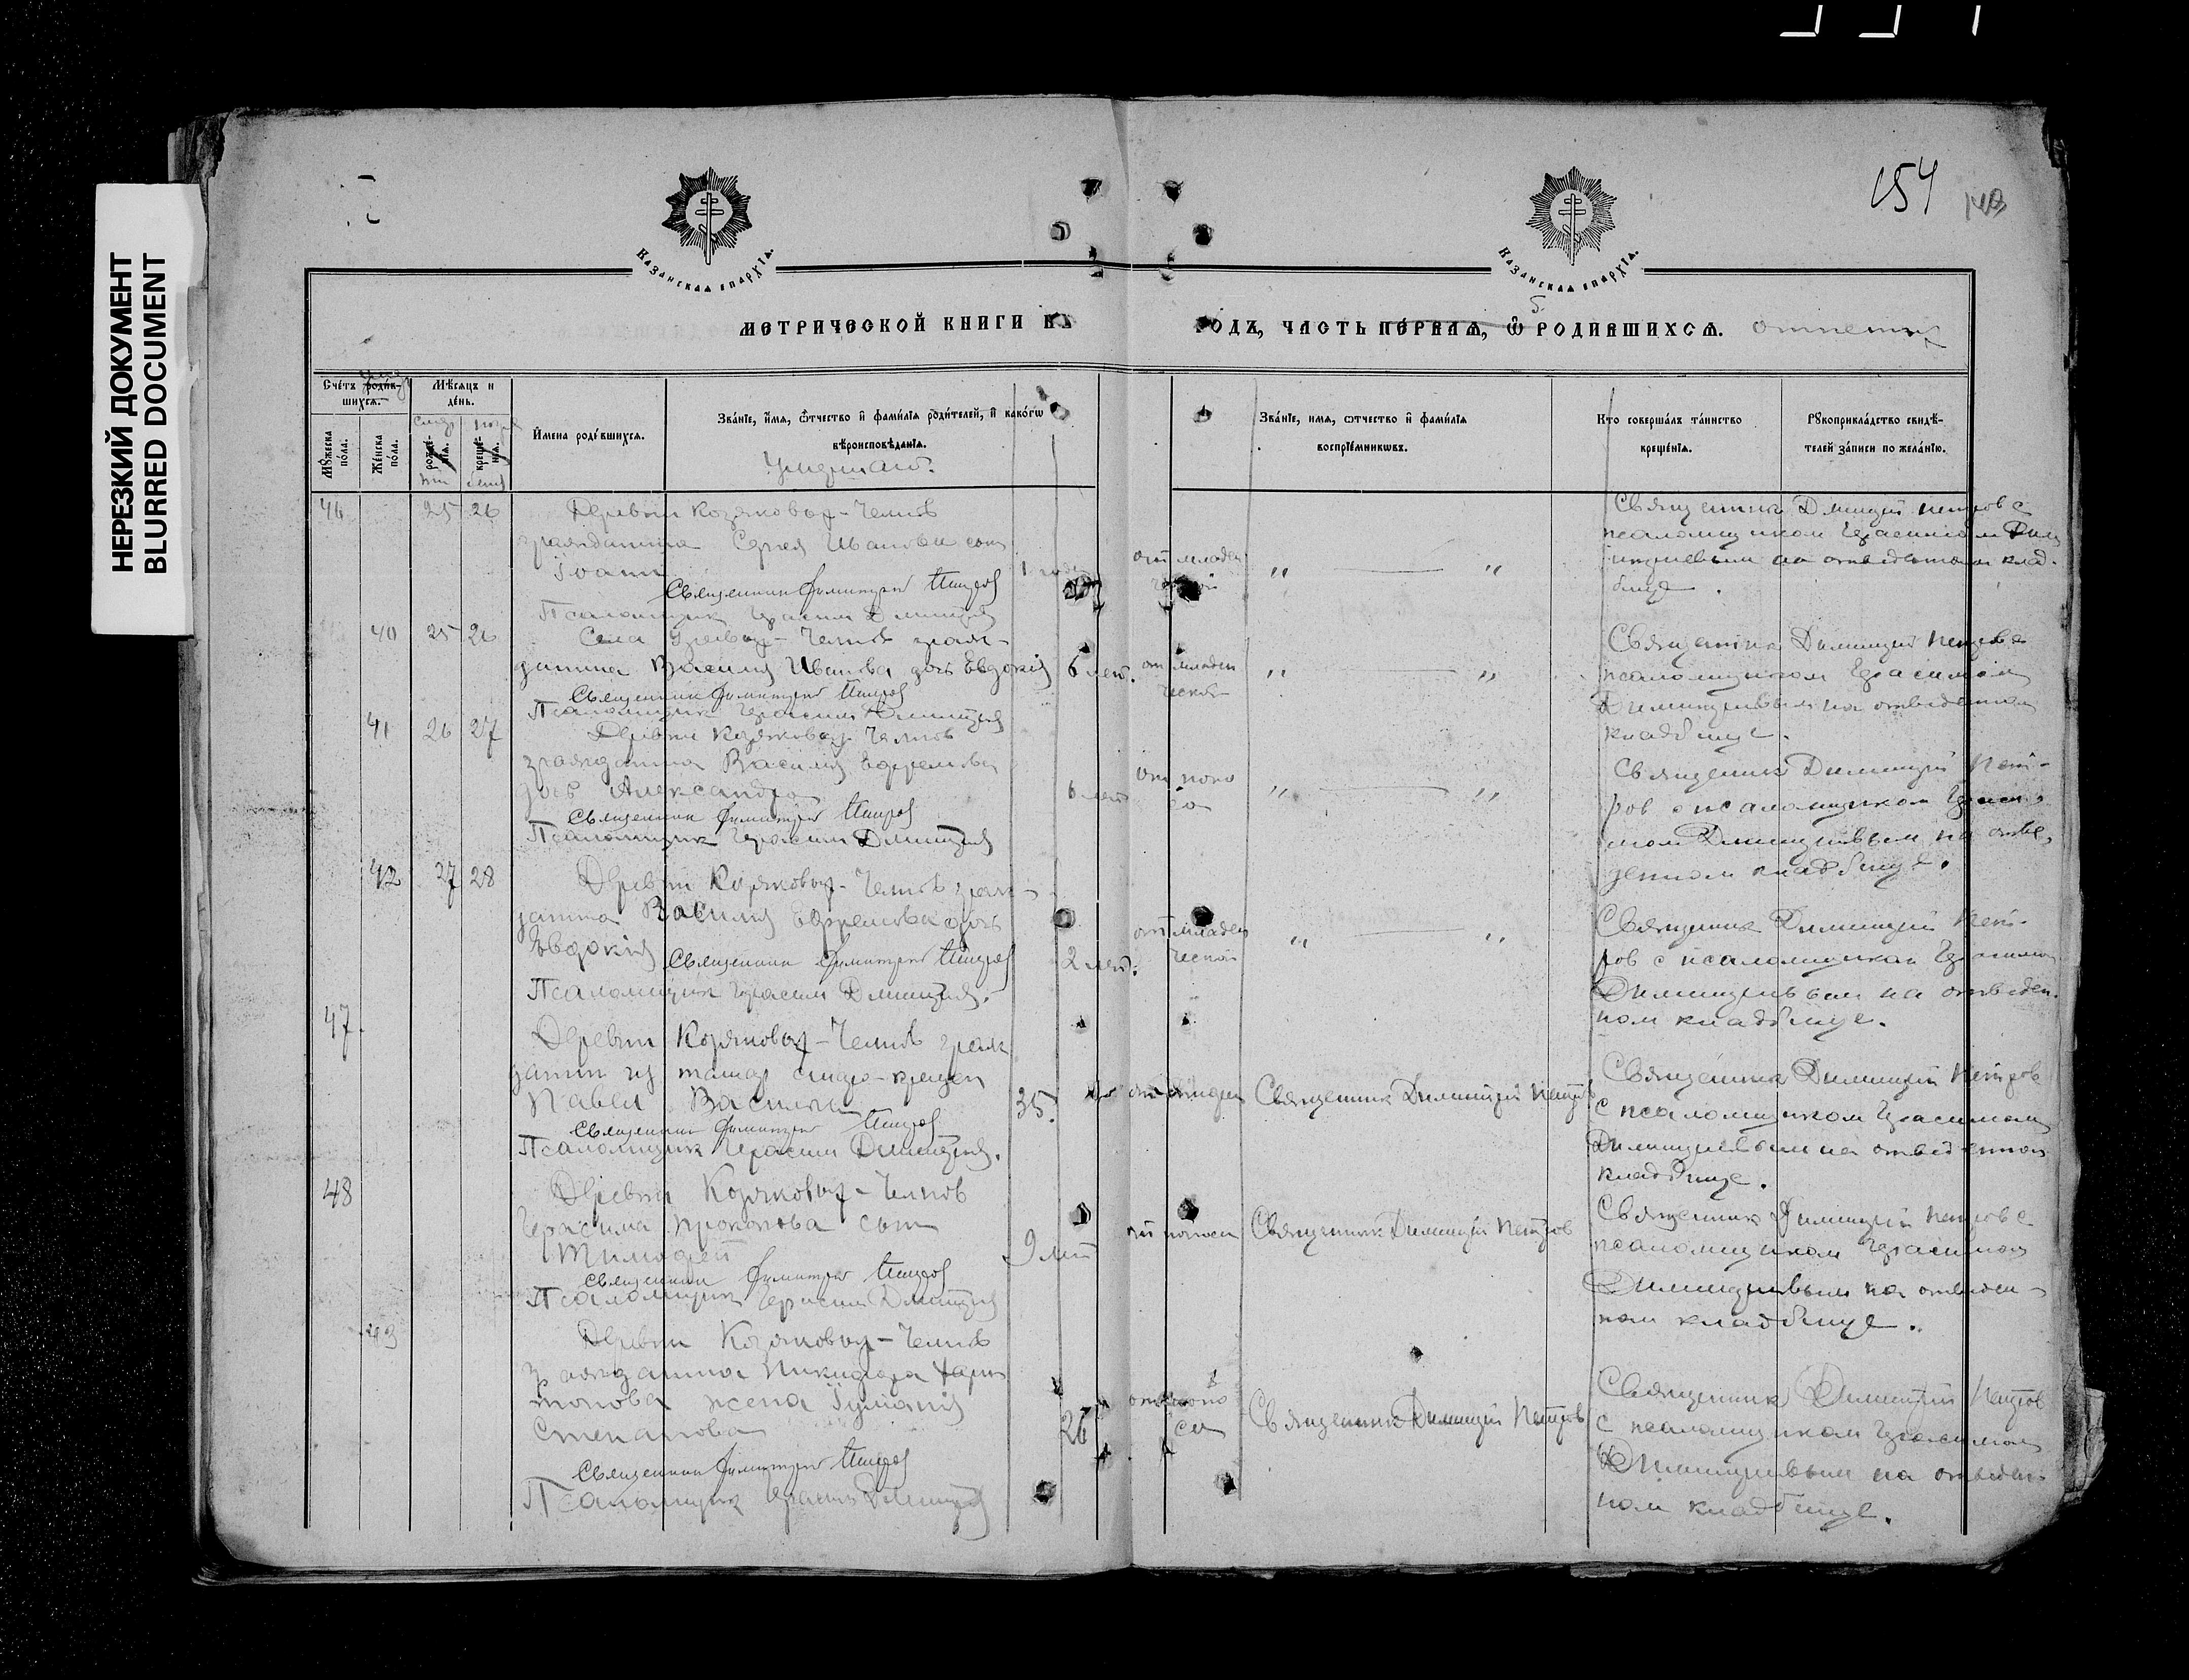 НЕРЕЗКИЙ ДОКУМЕНТ
BLURRED DOCUMENT
154
КАЗАНСКАЯ ЕПАРХІЯ.
КАЗАНСКАЯ ЕПАРХІЯ.
МЕТРИЧЕСКОЙ КНИГИ ВЪ
ГОДЪ, ЧАСТЬ ПЕРВАЯ, Ѿ РОДИВШИХСЯ.
Счетъ родив-
шихся.
Мѣсяцъ и
день.
Мужеска пола.
Женска пола.
рожде-
нія.
креще-
нія.
Имена родившихся.
Званіе, имя, отчество и фамилія родителей, и какогѡ
вѣроисповѣданія.
Званіе, имя, ѡтчество и фамилія
воспріемникѡвъ.
Кто совершалъ таинство
крещенія.
Рукоприкладство свидѣ-
телей записи по желанію.
46 25 26 Деревни Козяковых-Челнов
гражданина Сергея Иванова сын
Іоанн 1 года от младен
ческой
Священник Димитрий Петров
Псаломщик Герасим Дмитриев
Священник Дмитрий Петров с
псаломщиком Герасимом Дми
триевым на отведенном клад-
бище.
40 25 26 Села Челнов граж-
данина Василия Иванова дочь Евдокия 6 лет. от младен
ческой
Священник Димитрий Петров
Псаломщик Герасим Дмитриев
Священник Димитрий Петров с
псаломщиком Герасимом
Димитриевым на отведенном
кладбище.
41 26 27 Деревни Козяковых Челнов
гражданина Василия Ефремова
дочь Александра 6 лет от поно
са
Священник Димитрий Петров
Псаломщик Герасим Дмитриев
Священник Димитрий Пет-
ров с псаломщиком Гераси-
мом Дмитриевым на отве-
денном кладбище.
42 27 28 Деревни Козяковых-Челнов граж-
данина Василия Ефремова дочь
Евдокия 2 лет. от младен
ческой
Священник Димитрий Петров
Псаломщик Герасим Дмитриев.
Священник Димитрий Пет-
ров с псаломщиком Герасимом
Димитриевым на отведен-
ном кладбище.
47. Деревни Козяковых-Челнов граж
данин из татар старо-крещен
Павел Васильев 35. Священник Димитрий Петров
Священник Димитрий Петров
Псаломщик Герасим Дмитриев.
Священник Димитрий Петров
с псаломщиком Герасимом
Димитриевым на отведенном
кладбище.
48 Деревни Козяковых-Челнов
Герасима Прокопова сын
Тимофей 9 лет Священник Димитрий Петров
Священник Димитрий Петров
Псаломщик Герасим Дмитриев
Священник Димитрий Петров с
псаломщиком Герасимом
Димитриевым на отведен-
ном кладбище.
43 Деревни Козяковых-Челнов
гражданина Никифора Хари
тонова жена
Степанова 26 от поно
са Священник Димитрий Петров
Священник Димитрий Петров
Псаломщик Герасим Дмитриев
Священник Димитрий Петров
с псаломщиком Герасимом
Димитриевым на отведен-
ном кладбище.